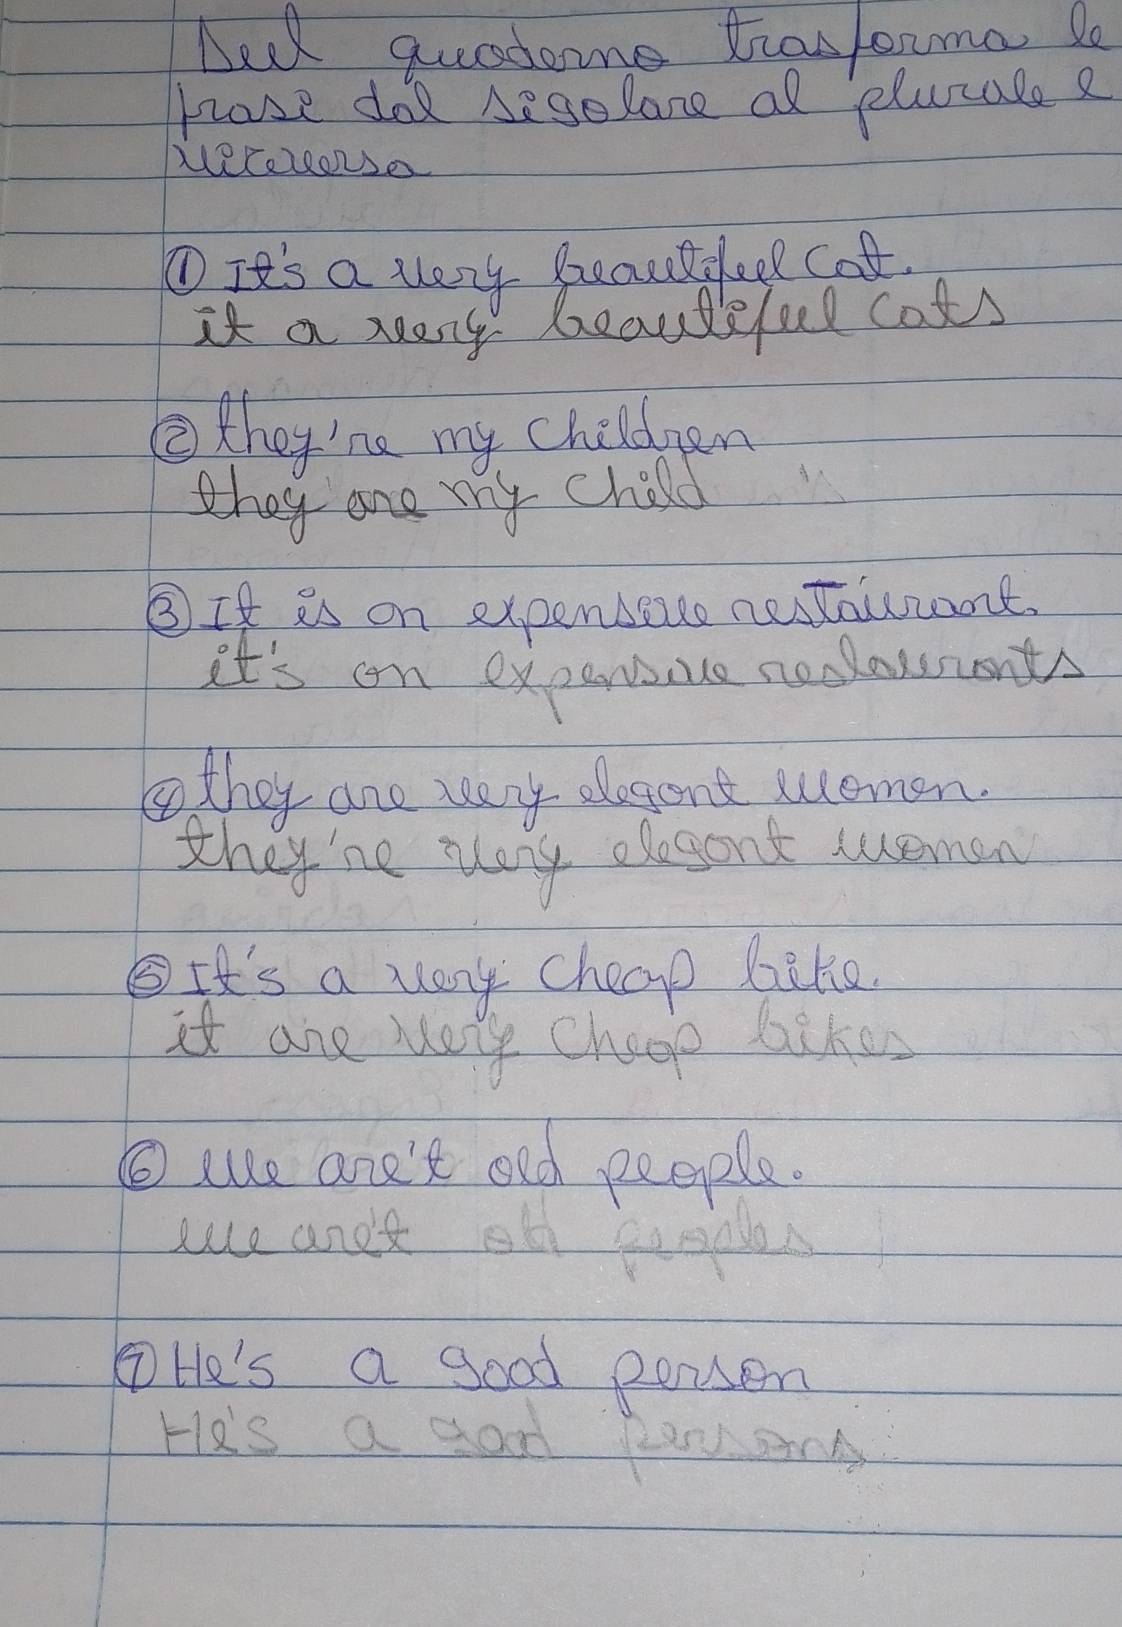 Sul quaderno trasforma le
frasi dal sigolare al plurale e
viceversa
① It's a very beautiful cat.
it a very beautiful cats
② they're my children
they are my child
③ It is an expensive restaurant.
it's an expensive restaurants
④ they are very elegant women.
they're very elegant women
⑤ It's a very cheap bike.
it are very cheap bikes
⑥ We are't old people.
we are't old peoples
⑦ He's a good person
He's a good persons